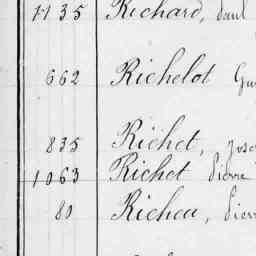 1135 Richard, Paul
662 Richelot Gu
835 Richet, Jose
1063 Richet Pierre
80 Richeu, Pierr